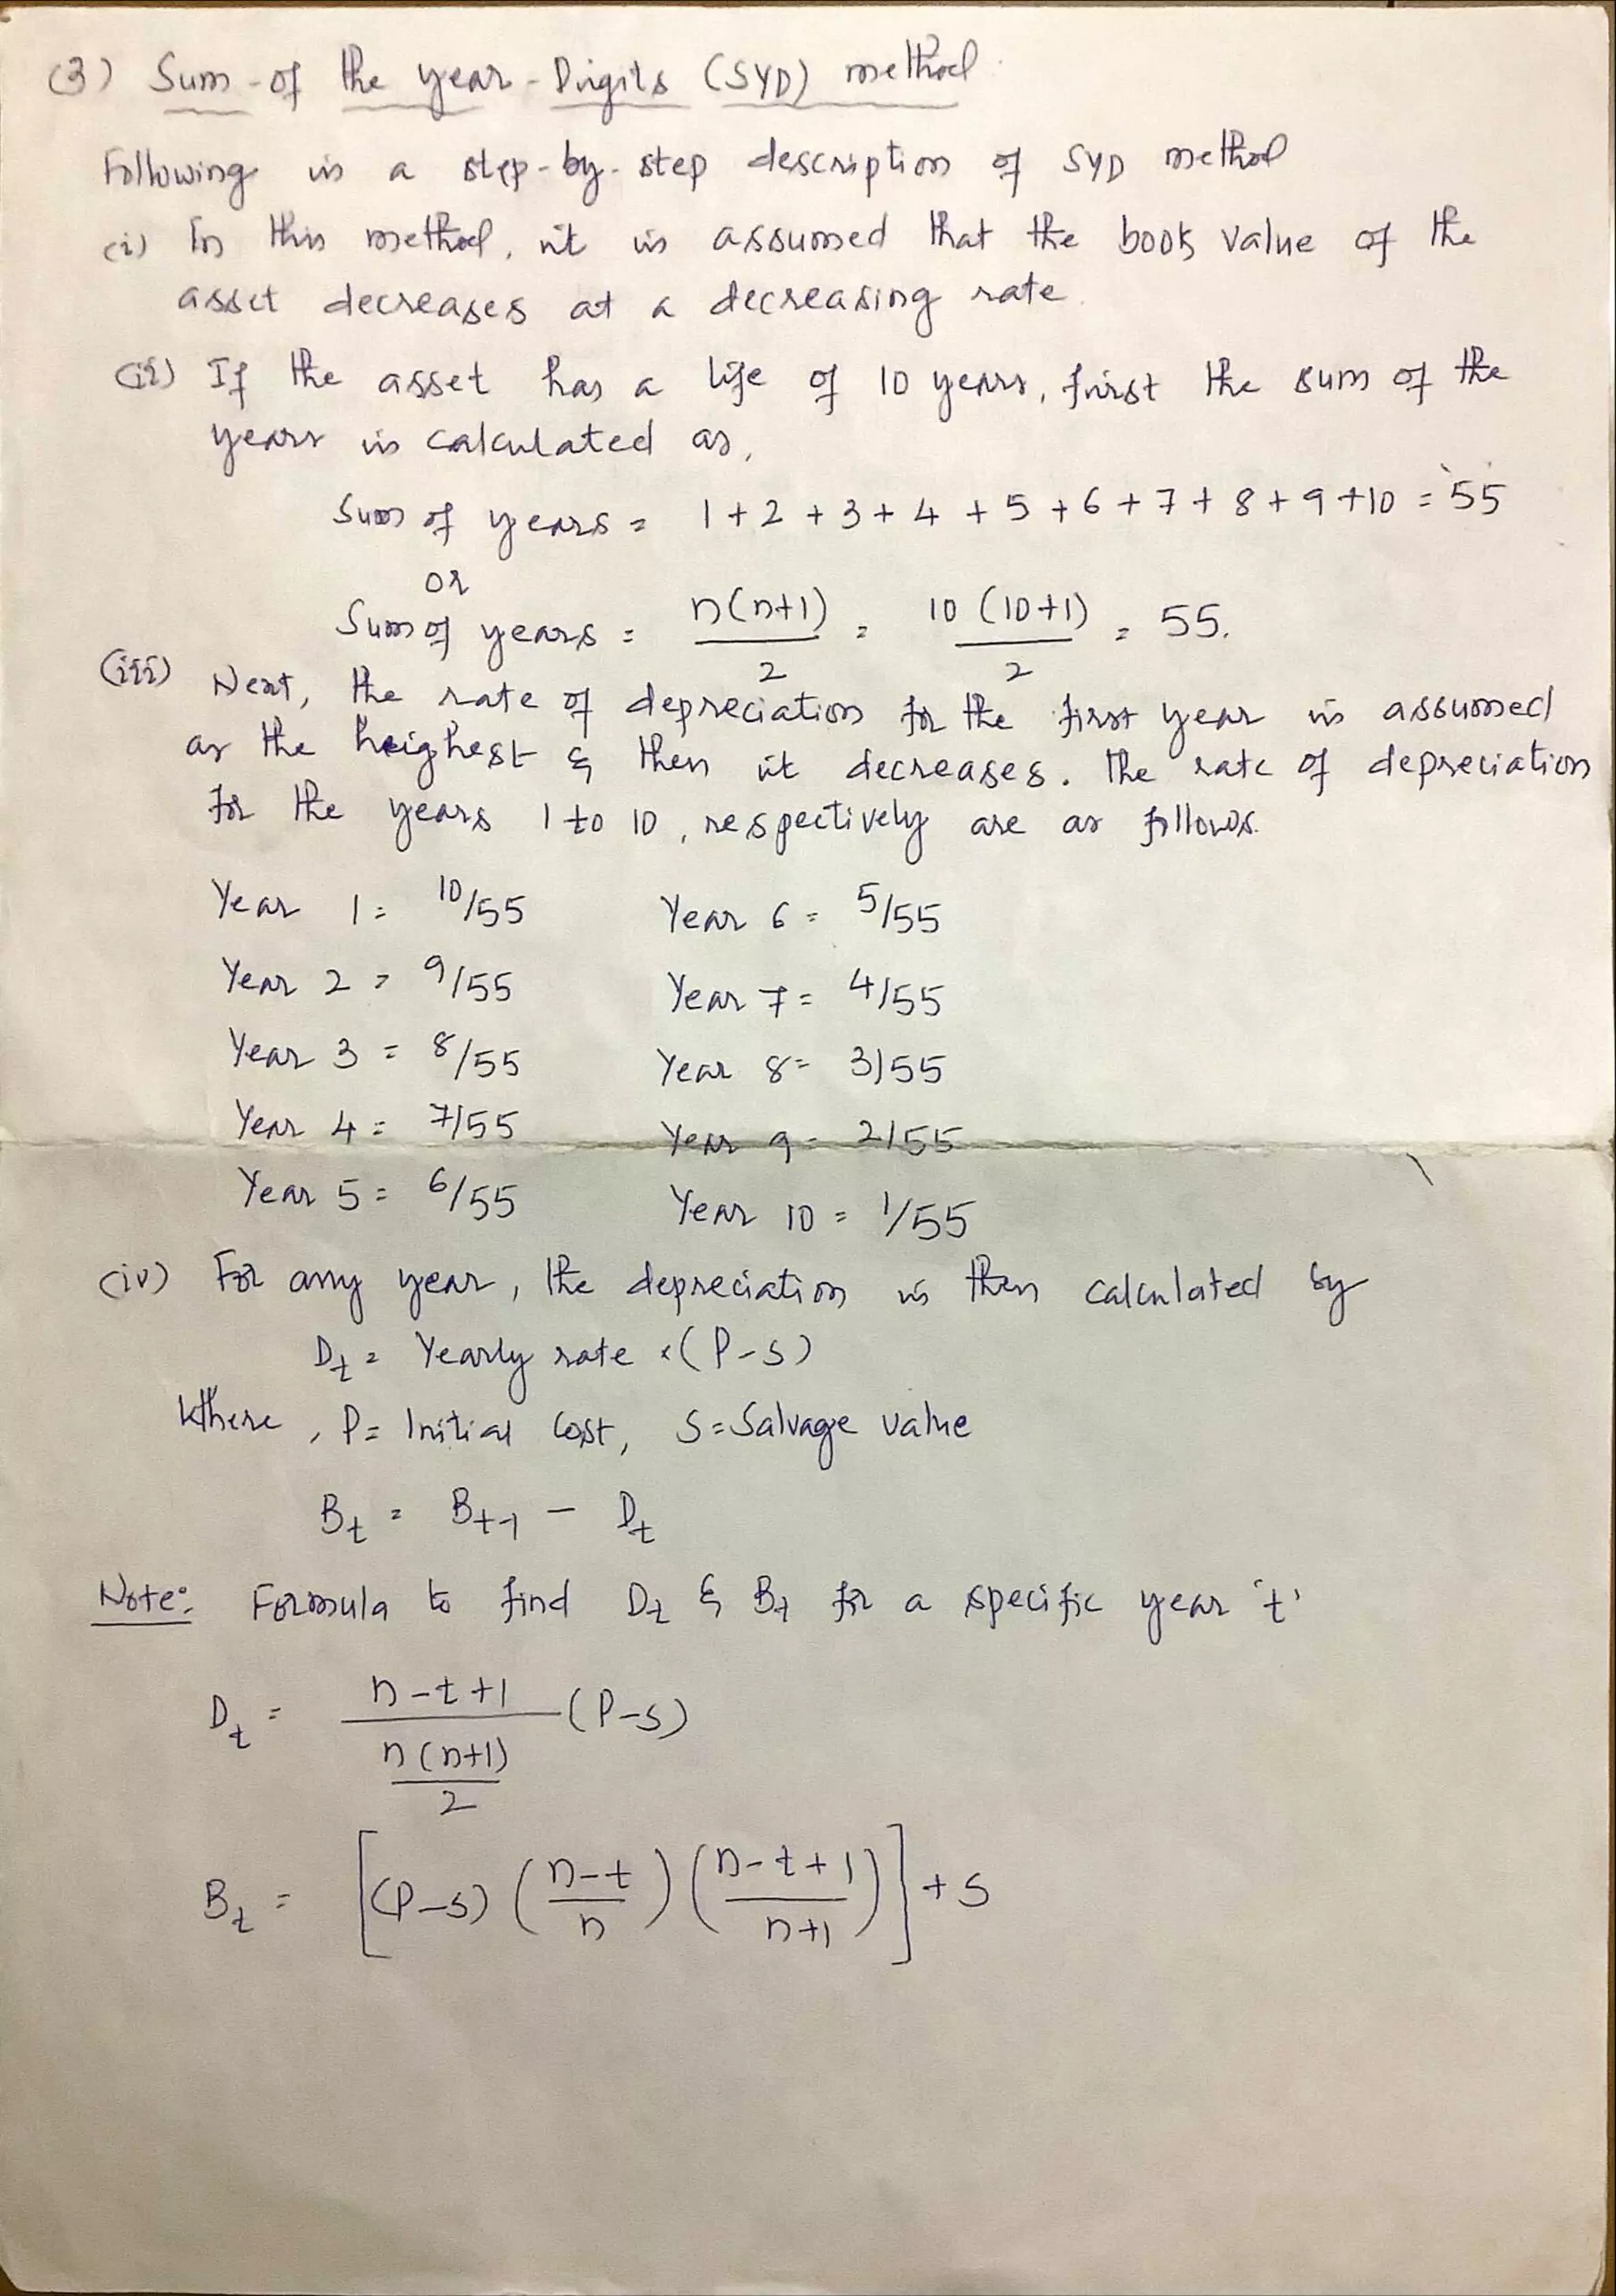 (3) Sum-of the year-Digits (SYD) method
Following is a step-by-step description of SYD method
(i) In this method, it is assumed that the book value of the
asset decreases at a decreasing rate.
(ii) If the asset has a life of 10 years, first the sum of the
years is calculated as,
Sum of years = 1+2+3+4+5+6+7+8+9+10 = 55
or
Sum of years = n(n+1)/2 = 10(10+1)/2 = 55.
(iii) Next, the rate of depreciation for the first year is assumed
as the heighest & then it decreases. The rate of depreciation
for the years 1 to 10, respectively are as follows.
Year 1 = 10/55 Year 6 = 5/55
Year 2 = 9/55 Year 7 = 4/55
Year 3 = 8/55 Year 8 = 3/55
Year 4 = 7/55 Year 9 = 2/55
Year 5 = 6/55 Year 10 = 1/55
(iv) For any year, the depreciation is then calculated by
D_t = Yearly rate × (P-S)
Where, P = Initial Cost, S = Salvage value
B_t = B_t-1 - D_t
Note: Formula to find D_t & B_t for a specific year 't'
D_t = (n-t+1)/(n(n+1)/2) (P-S)
B_t = [(P-S) ((n-t)/n) ((n-t+1)/(n+1))] + S